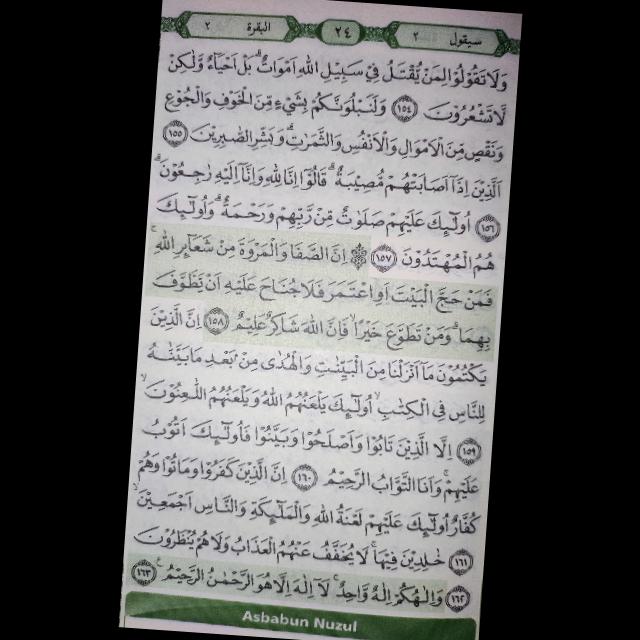 سيقول ٢ ٢٤ البقرة ٢
وَلَا تَقُوْلُوْا لِمَنْ يُّقْتَلُ فِيْ سَبِيْلِ اللّٰهِ اَمْوَاتٌ ۗ بَلْ اَحْيَاۤءٌ وَّلٰكِنْ
لَّا تَشْعُرُوْنَ ١٥٤ وَلَنَبْلُوَنَّكُمْ بِشَيْءٍ مِّنَ الْخَوْفِ وَالْجُوْعِ
وَنَقْصٍ مِّنَ الْاَمْوَالِ وَالْاَنْفُسِ وَالثَّمَرٰتِ ۗ وَبَشِّرِ الصّٰبِرِيْنَ ١٥٥
اَلَّذِيْنَ اِذَآ اَصَابَتْهُمْ مُّصِيْبَةٌ ۗ قَالُوْٓا اِنَّا لِلّٰهِ وَاِنَّآ اِلَيْهِ رٰجِعُوْنَ ۗ
١٥٦ اُولٰۤىِٕكَ عَلَيْهِمْ صَلَوٰتٌ مِّنْ رَّبِّهِمْ وَرَحْمَةٌ ۗ وَاُولٰۤىِٕكَ
هُمُ الْمُهْتَدُوْنَ ١٥٧ ۞ اِنَّ الصَّفَا وَالْمَرْوَةَ مِنْ شَعَاۤىِٕرِ اللّٰهِ ۚ
فَمَنْ حَجَّ الْبَيْتَ اَوِ اعْتَمَرَ فَلَا جُنَاحَ عَلَيْهِ اَنْ يَّطَّوَّفَ
بِهِمَا ۗ وَمَنْ تَطَوَّعَ خَيْرًاۙ فَاِنَّ اللّٰهَ شَاكِرٌ عَلِيْمٌ ١٥٨ اِنَّ الَّذِيْنَ
يَكْتُمُوْنَ مَآ اَنْزَلْنَا مِنَ الْبَيِّنٰتِ وَالْهُدٰى مِنْۢ بَعْدِ مَا بَيَّنّٰهُ
لِلنَّاسِ فِى الْكِتٰبِۙ اُولٰۤىِٕكَ يَلْعَنُهُمُ اللّٰهُ وَيَلْعَنُهُمُ اللّٰعِنُوْنَۙ
١٥٩ اِلَّا الَّذِيْنَ تَابُوْا وَاَصْلَحُوْا وَبَيَّنُوْا فَاُولٰۤىِٕكَ اَتُوْبُ
عَلَيْهِمْ ۚ وَاَنَا التَّوَّابُ الرَّحِيْمُ ١٦٠ اِنَّ الَّذِيْنَ كَفَرُوْا وَمَاتُوْا وَهُمْ
كُفَّارٌ اُولٰۤىِٕكَ عَلَيْهِمْ لَعْنَةُ اللّٰهِ وَالْمَلٰۤىِٕكَةِ وَالنَّاسِ اَجْمَعِيْنَۙ
١٦١ خٰلِدِيْنَ فِيْهَا ۚ لَا يُخَفَّفُ عَنْهُمُ الْعَذَابُ وَلَا هُمْ يُنْظَرُوْنَ
١٦٢ وَاِلٰهُكُمْ اِلٰهٌ وَّاحِدٌ ۚ لَآ اِلٰهَ اِلَّا هُوَ الرَّحْمٰنُ الرَّحِيْمُ ۚ ١٦٣
Asbabun Nuzul